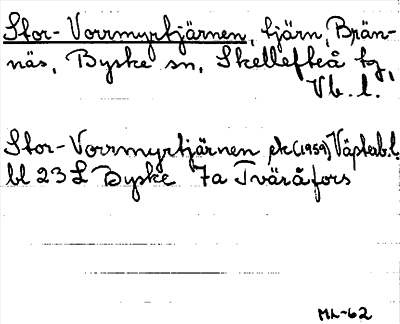 Stor-Vorrmyrtjärnen, tjärn, Brän-
näs, Byske sn, Skellefteå tg,
Vb. l.
Stor-Vorrmyrtjärnen ek (1959) Västerb.l.
bl 23 L Byske 7a Tväråfors
ML-62